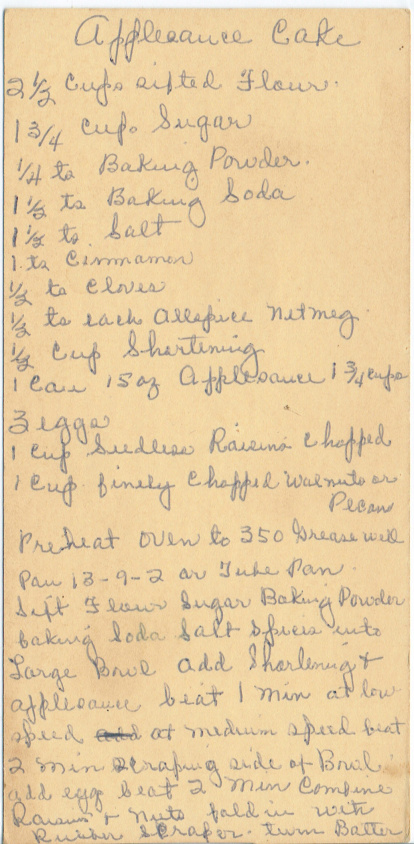 Applesauce Cake
2 1/2 Cups sifted Flour.
1 3/4 Cups Sugar
1/4 ts Baking Powder.
1 1/2 ts Baking Soda
1 1/2 ts. Salt
1 ts Cinnamon
1/2 ts Cloves
1/2 ts each Allspice Nutmeg.
1/2 Cup Shortening
1 Can 15 oz Applesauce 1 3/4 cups
3 eggs
1 Cup Seedless Raisins Chopped
1 Cup finely Chopped Walnuts or
Pecan
Preheat oven to 350 Grease well
Pan 13-9-2 or Tube Pan.
Sift Flour Sugar Baking Powder
baking Soda Salt Spices into
Large Bowl add Shortening +
applesauce beat 1 min at low
speed at medium speed beat
2 min scraping side of Bowl
add eggs beat 2 Min Combine
Raisins + Nuts fold in with
Rubber Scraper. turn Batter